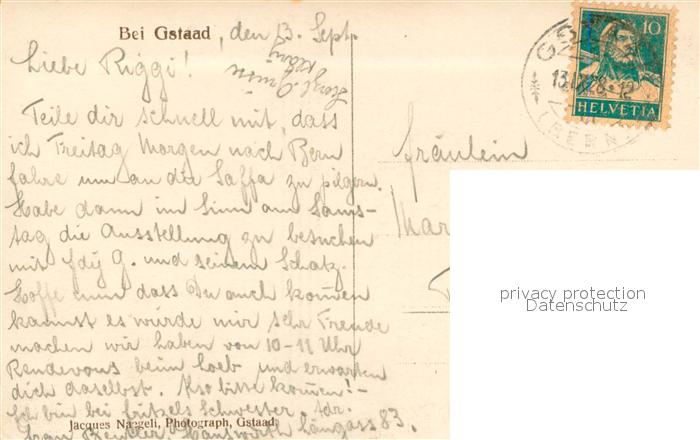 Bei Gstaad, den 13. Sept.
Liebe Riggi!
Herzl. Grüsse
Teile dir schnell mit, dass
ich Freitag Morgen nach Bern
fahre um an die Saffa zu pilgern.
Habe dann im Sinn am Sams-
tag die Ausstellung zu besuchen
mit Edij G. und seinem Schatz.
Hoffe nun dass Du auch kommen
kannst es würde mir sehr Freude
machen wir haben von 10-11 Uhr
Rendevous beim Loeb und erwarten
dich daselbst. Also bitte kommen! -
Ich bin bei Fritzels Schwester. Adr.
Jacques Naegeli, Photograph, Gstaad.
Frau Beutler. Länggass 83.
Fräulein
Mar
10
HELVETIA
13.IX.28-12
(BERN
privacy protection
Datenschutz